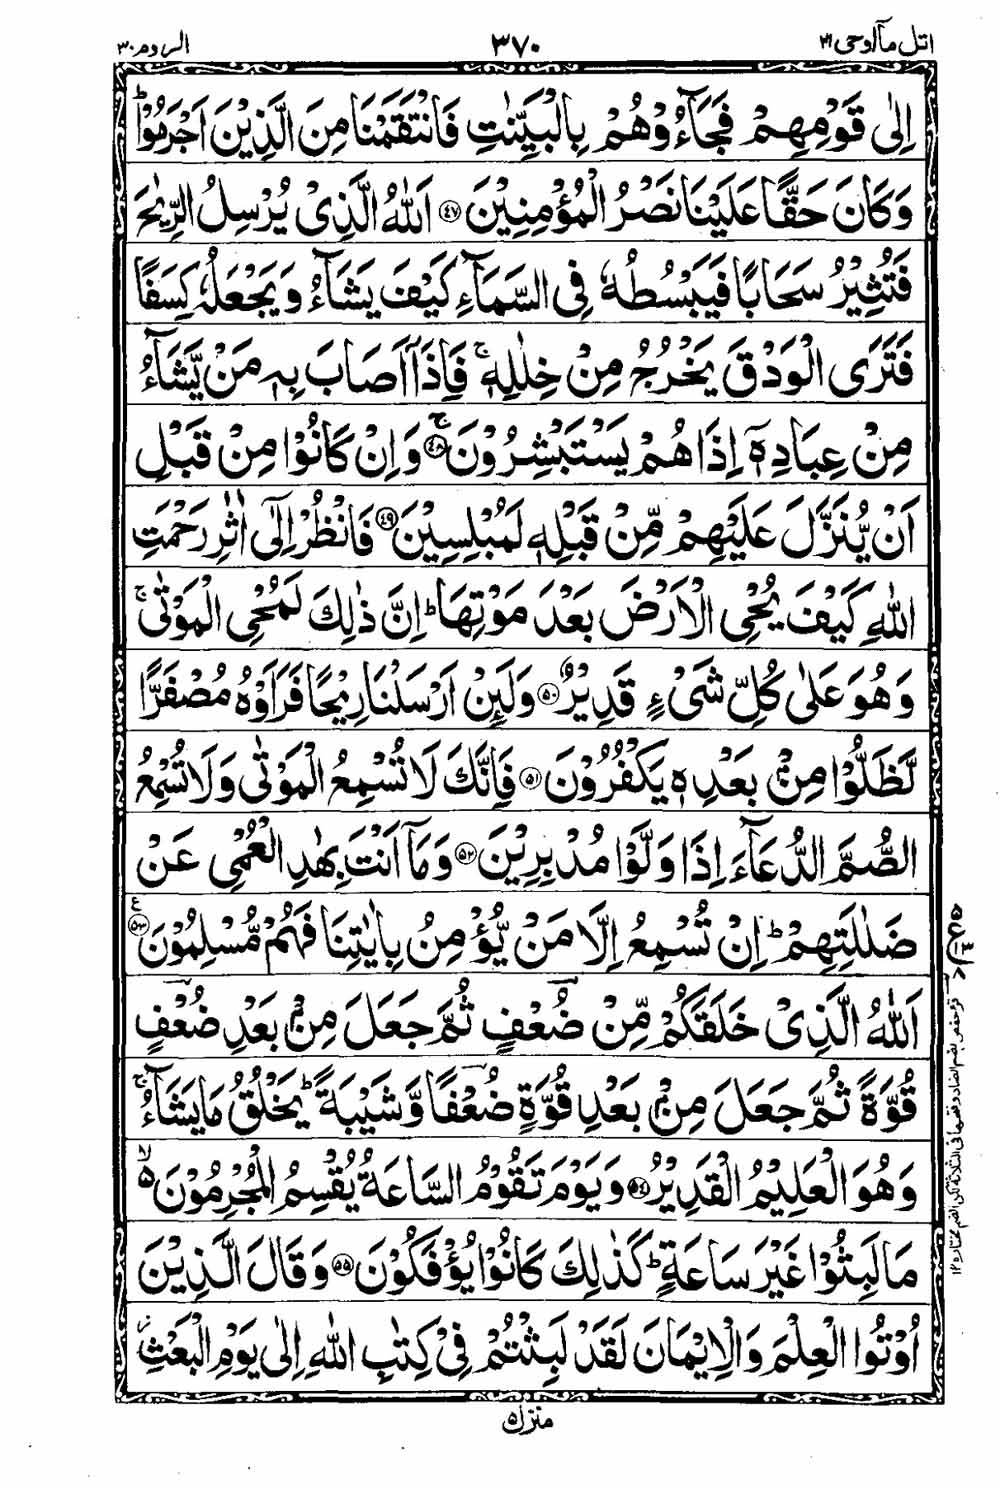 اتل ماۤ اوحی ۲۱ ۳۷۰ الروم ۳۰
اِلٰى قَوْمِهِمْ فَجَآءُوْهُمْ بِالْبَيِّنٰتِ فَانْتَقَمْنَا مِنَ الَّذِيْنَ اَجْرَمُوْا ؕ
وَكَانَ حَقًّا عَلَيْنَا نَصْرُ الْمُؤْمِنِيْنَ ﴿۴۷﴾ اَللّٰهُ الَّذِيْ يُرْسِلُ الرِّيٰحَ
فَتُثِيْرُ سَحَابًا فَيَبْسُطُهٗ فِي السَّمَآءِ كَيْفَ يَشَآءُ وَيَجْعَلُهٗ كِسَفًا
فَتَرَى الْوَدْقَ يَخْرُجُ مِنْ خِلٰلِهٖ ۚ فَاِذَاۤ اَصَابَ بِهٖ مَنْ يَّشَآءُ
مِنْ عِبَادِهٖۤ اِذَا هُمْ يَسْتَبْشِرُوْنَ ﴿۴۸﴾ۚ وَاِنْ كَانُوْا مِنْ قَبْلِ
اَنْ يُّنَزَّلَ عَلَيْهِمْ مِّنْ قَبْلِهٖ لَمُبْلِسِيْنَ ﴿۴۹﴾ فَانْظُرْ اِلٰۤى اٰثٰرِ رَحْمَتِ
اللّٰهِ كَيْفَ يُحْيِ الْاَرْضَ بَعْدَ مَوْتِهَا ؕ اِنَّ ذٰلِكَ لَمُحْيِ الْمَوْتٰى ۚ
وَهُوَ عَلٰى كُلِّ شَيْءٍ قَدِيْرٌ ﴿۵۰﴾ وَلَئِنْ اَرْسَلْنَا رِيْحًا فَرَاَوْهُ مُصْفَرًّا
لَّظَلُّوْا مِنْۢ بَعْدِهٖ يَكْفُرُوْنَ ﴿۵۱﴾ فَاِنَّكَ لَا تُسْمِعُ الْمَوْتٰى وَلَا تُسْمِعُ
الصُّمَّ الدُّعَآءَ اِذَا وَلَّوْا مُدْبِرِيْنَ ﴿۵۲﴾ وَمَاۤ اَنْتَ بِهٰدِ الْعُمْيِ عَنْ
ضَلٰلَتِهِمْ ؕ اِنْ تُسْمِعُ اِلَّا مَنْ يُّؤْمِنُ بِاٰيٰتِنَا فَهُمْ مُّسْلِمُوْنَ ﴿۵۳﴾ ع
اَللّٰهُ الَّذِيْ خَلَقَكُمْ مِّنْ ضُعْفٍ ثُمَّ جَعَلَ مِنْۢ بَعْدِ ضُعْفٍ
قُوَّةً ثُمَّ جَعَلَ مِنْۢ بَعْدِ قُوَّةٍ ضُعْفًا وَّشَيْبَةً ؕ يَخْلُقُ مَا يَشَآءُ ۚ
وَهُوَ الْعَلِيْمُ الْقَدِيْرُ ﴿۵۴﴾ وَيَوْمَ تَقُوْمُ السَّاعَةُ يُقْسِمُ الْمُجْرِمُوْنَ ۙ۬
مَا لَبِثُوْا غَيْرَ سَاعَةٍ ؕ كَذٰلِكَ كَانُوْا يُؤْفَكُوْنَ ﴿۵۵﴾ وَقَالَ الَّذِيْنَ
اُوْتُوا الْعِلْمَ وَالْاِيْمَانَ لَقَدْ لَبِثْتُمْ فِيْ كِتٰبِ اللّٰهِ اِلٰى يَوْمِ الْبَعْثِ ز
منزل ۵